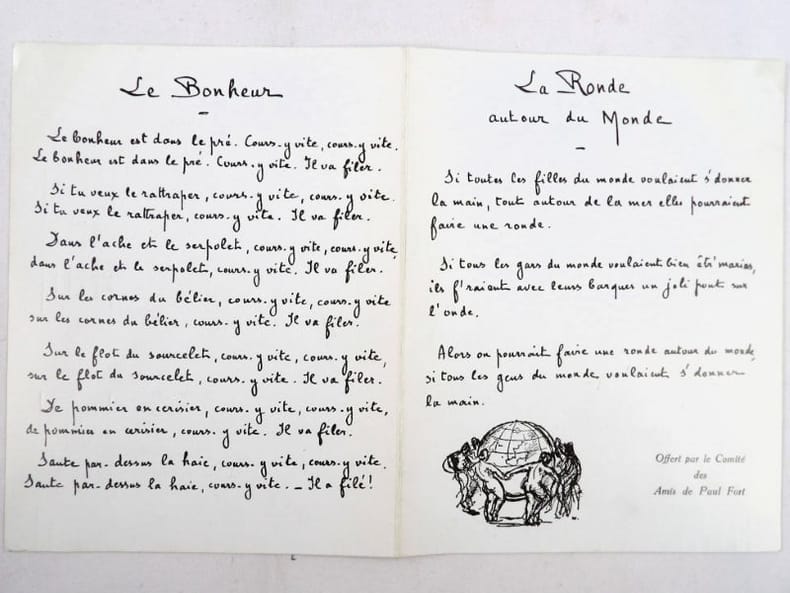 Le Bonheur
Le bonheur est dans le pré. Cours-y vite, cours-y vite.
Le bonheur est dans le pré. Cours-y vite. Il va filer.
Si tu veux le rattraper, cours-y vite, cours-y vite.
Si tu veux le rattraper, cours-y vite. Il va filer.
Dans l'ache et le serpolet, cours-y vite, cours-y vite,
dans l'ache et le serpolet, cours-y vite. Il va filer.
Sur les cornes du bélier, cours-y vite, cours-y vite
sur les cornes du bélier, cours-y vite. Il va filer.
Sur le flot du sourcelet, cours-y vite, cours-y vite,
sur le flot du sourcelet, cours-y vite. Il va filer.
De pommier en cerisier, cours-y vite, cours-y vite,
de pommier en cerisier, cours-y vite. Il va filer.
Saute par-dessus la haie, cours-y vite, cours-y vite.
Saute par-dessus la haie, cours-y vite. _ Il a filé!
La Ronde
autour du Monde
Si toutes les filles du monde voulaient s'donner
la main, tout autour de la mer elles pourraient
faire une ronde.
Si tous les gars du monde voulaient bien êtr' marins,
ils f'raient avec leurs barques un joli pont sur
l'onde.
Alors on pourrait faire une ronde autour du monde,
si tous les gens du monde voulaient s'donner
la main.
Offert par le Comité
des
Amis de Paul Fort